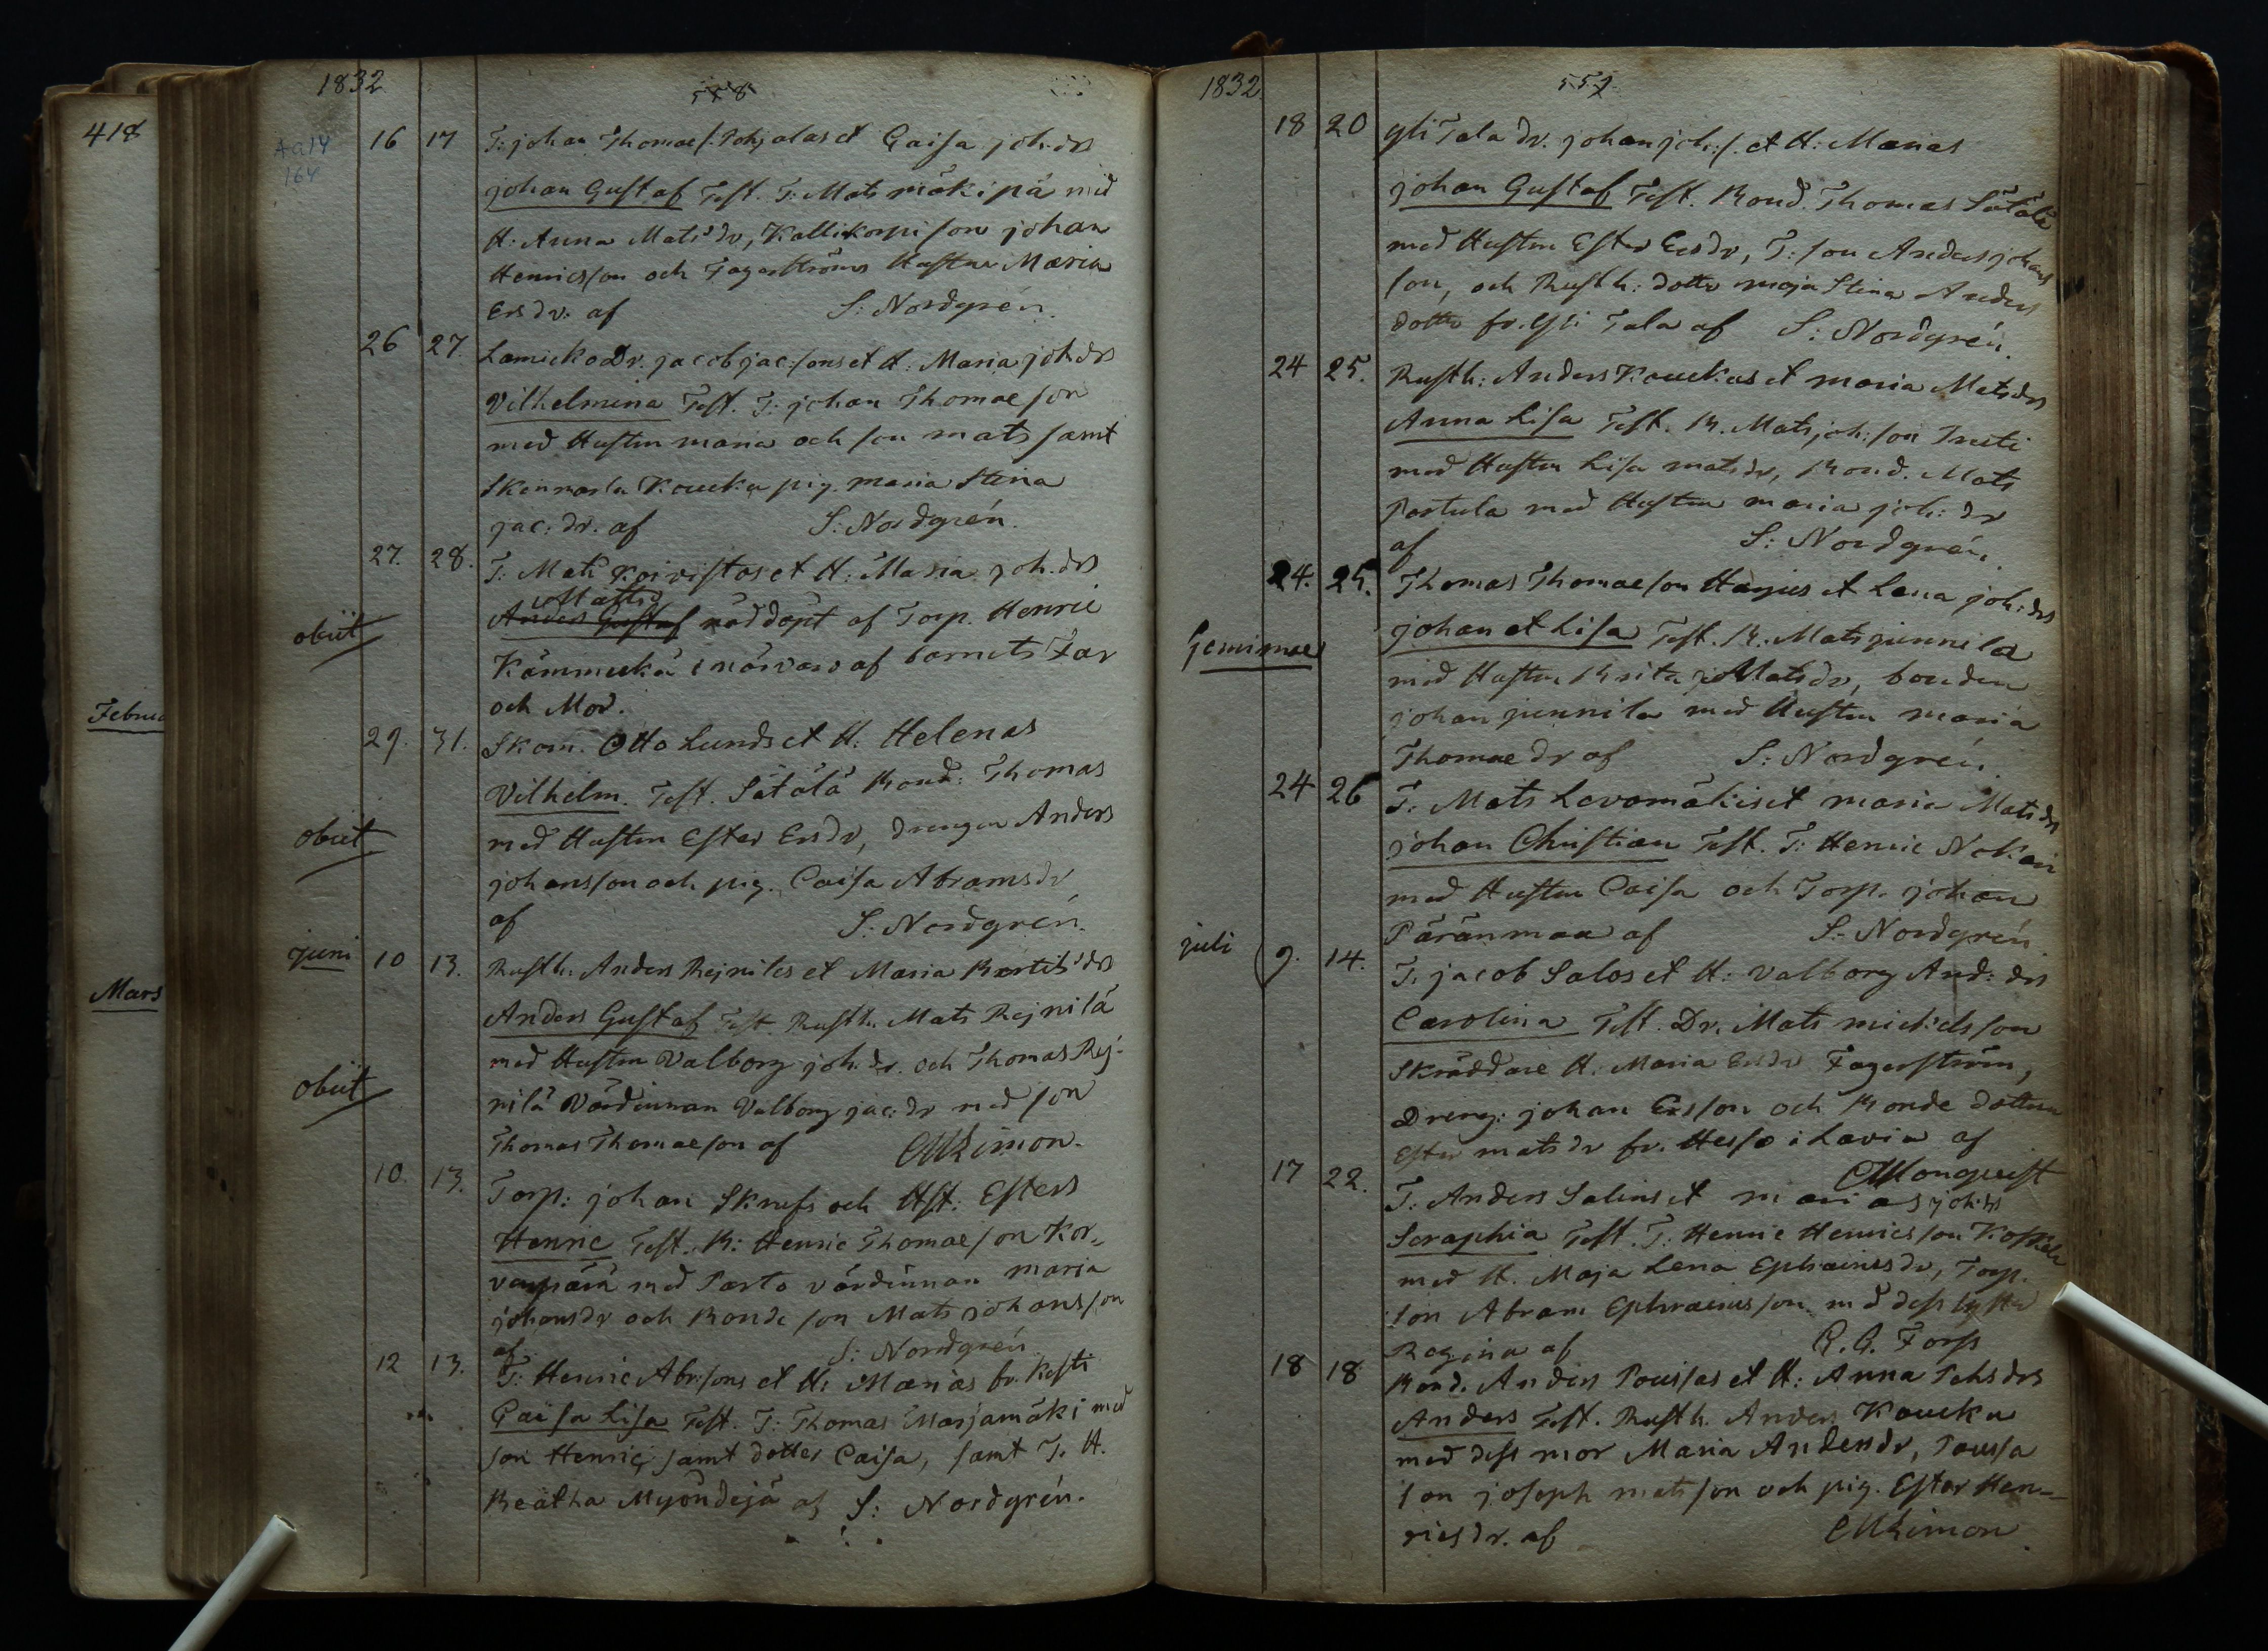 418
Februa
Mars
1832
558
Aa14
164
16 17 T: johan Thomae/: Pohjalas et Caisa joh:drs
johan Gustaf Test. T: Mats mäkipä med
H: Anna Mats'dr, Kallikorpi son johan
Henricsson och Fagerströms Hustru Maria
Ersdr: af S: Nordgrén.
26 27. Lamicko Dr. jacob jac:sons et H: Maria joh:drs
Vilhelmina Test. T: johan Thomaeson
med Hustru maria och son mats samt
Skinnarla Koucku pig. maria Stina
jac: dr. af S: Nordgrén.
27. 28. T: Mats Koivistos et H: Maria joh.drs
Matts
obiit Anders Gustaf nöddöpt af Torp. Henric
Kämmeckä i närvaro af barnets Far
och Mor.
29. 31. Skom. Otto Lunds et H: Helenas
Vilhelm. Test. Sätälä Bond: Thomas
obiit med Hustru Ester Ersdr, drengen Anders
johansson och pig. Caisa Abramsdr
af S: Nordgrén.
juni 10 13. Rusth: Anders Rejniles et Maria Bertils'drs
Anders Gustaf Test Rusth. Mats Rejnilä
med Hustru Valborg joh. dr. och Thomas Rej-
obiit nilä Värdinnan Valborg jac: dr med son
Thomas Thomaeson af CM Limon.
10. 13. Torp: johan Skrufs och Hst: Esters
Henric Test. B: Henric Thomaeson Kor,,
venpää med Parto värdinnan maria
johansdr och Bonde son Mats johansson
af S: Nordgrén
12 13. T: Henric Abr:sons et H: Marias fr. Kesti
Caisa Lisa Test. T: Thomas Marjamäki med
son Henric samt dotter Caisa, samt T. H.
Beatha Myöndejä af S: Nordgrén.
1832.
559
18 20 Yli Tala Dr. johan joh:/. et H: Marias
johan Gustaf Test. Bond. Thomas Sätälä
med Hustru Ester Ersdr, T: son Anders johans
son, och Rusth: dotter maja Stina Anders
dotter fr. Yli Tala af S: Nordgrén.
24 25. Rusth: Anders Kouckus et maria Matsdrs
Anna Lisa Test. B. Mats joh:son Trusti
med Hustru Lisa matsdr, Bond. Mats
Partula med Hustru maria joh: dr
af S: Nordgrén.
24. 25. Thomas Thomaeson Hagus et Lena joh:drs
Geminae johan et Lisa Test. B. Mats junnila
med Hustru Brita Matsdr, bonden
johan junnila med Hustru maria
Thomae dr af S: Nordgrén.
24 26 T: Mats Lavamäkis et maria Matsdrs
johan Christian Test. T: Henric Nokari
med Hustru Caisa och Torp. johan
Päränmaa af S: Nordgrén
juli 9. 14. T: jacob Salos et H: Valborg And: drs
Carolina Test. Dr. Mats mickelsson
Skräddare H. Maria Ersdr Fagerström,
Dreng: johan Ersson och Bonde dottren
Ester matsdr fr. Hesso i Lavia af
CM Lonqvist
17 22. T: Anders Salins et marias joh:drs
Seraphia Test. T: Henric Henricsson Koskela
med H. Maja Lena Ephraimsdr, Torp.
son Abram Ephraimsson med dess syster
Regina af R. G. Forss
18 18 Bond. Anders Poussas et H: Anna Pehsdrs
Anders Test. Rusth. Anders Koucku
med dess mor Maria Andersdr, Poussa
son joseph matsson och pig. Ester Hen-
ricsdr. af CM Limon.